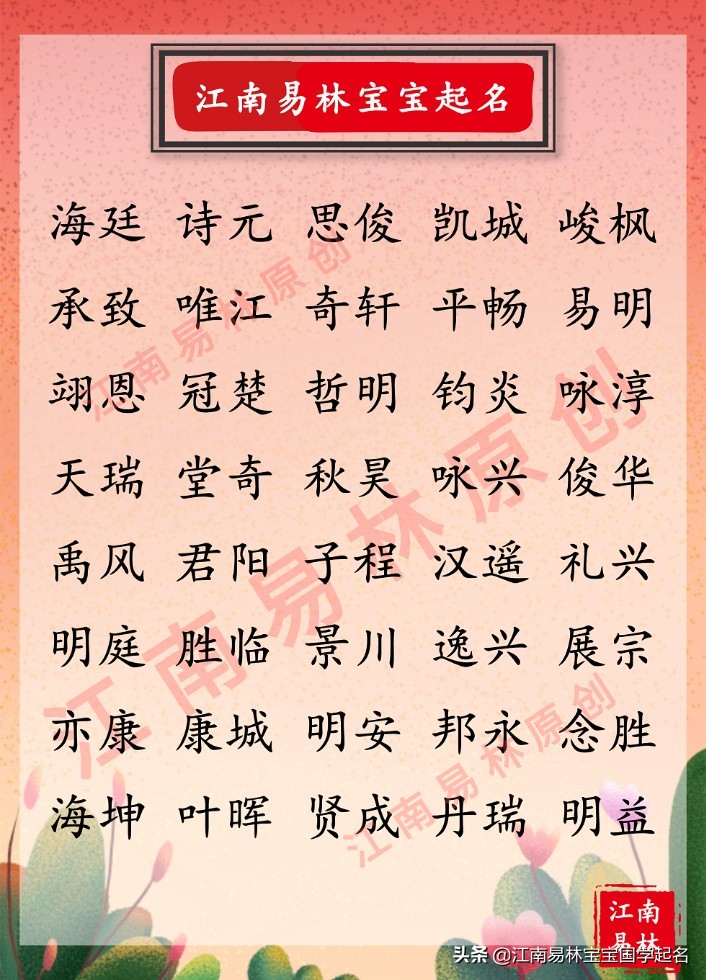 江南易林宝宝起名
海廷 诗元 思俊 凯城 峻枫
承致 唯江 奇轩 平畅 易明
翊恩 冠楚 哲明 钧炎 咏淳
天瑞 堂奇 秋昊 咏兴 俊华
禹风 君阳 子程 汉遥 礼兴
明庭 胜临 景川 逸兴 展宗
亦康 康城 明安 邦永 念胜
海坤 叶晖 贤成 丹瑞 明益
江南易林原创
江南易林原创
江南易林原创
江南
易林
头条 @江南易林宝宝国学起名